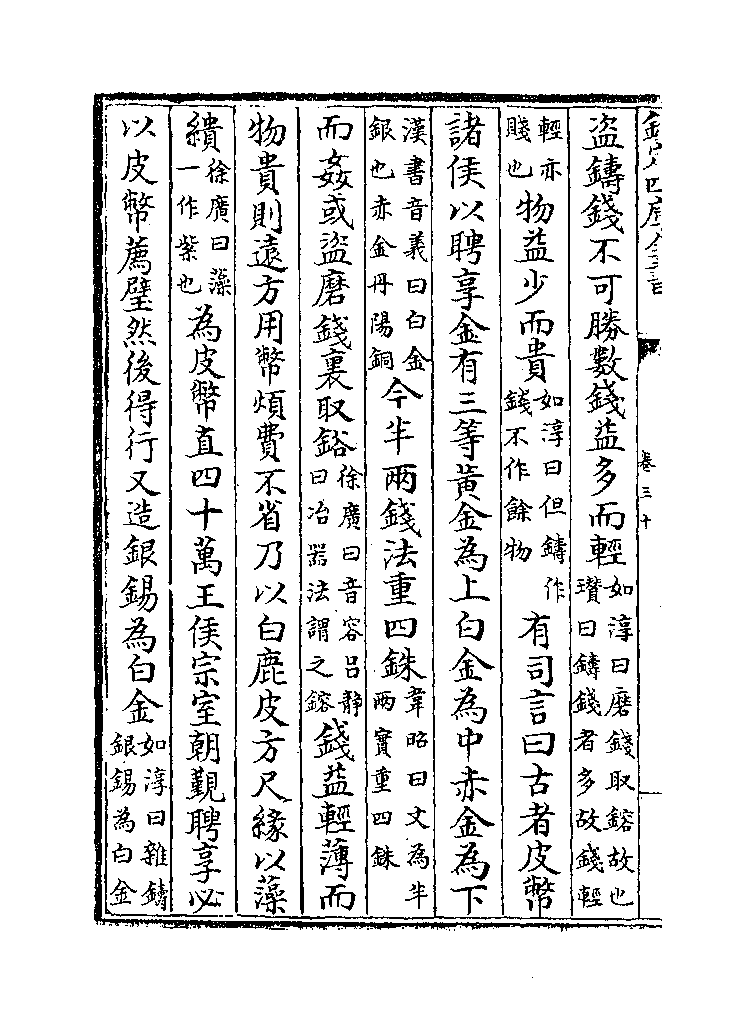 欽定四庫全書
卷三十
盜鑄錢不可勝數錢益多而輕如淳曰磨錢取鎔故也瓚曰鑄錢者多故錢輕
輕亦賤也物益少而貴如淳曰但鑄作錢不作餘物有司言曰古者皮幣
諸侯以聘享金有三等黃金為上白金為中赤金為下
漢書音義曰白金銀也赤金丹陽銅今半兩錢法重四銖韋昭曰文為半兩實重四銖
而姦或盜磨錢裏取鋊徐廣曰音容呂静曰冶器法謂之鎔錢益輕薄而
物貴則遠方用幣煩費不省乃以白鹿皮方尺緣以藻
繢徐廣曰藻一作紫也為皮幣直四十萬王侯宗室朝覲聘享必
以皮幣薦璧然後得行又造銀錫為白金如淳曰雜鑄銀錫為白金